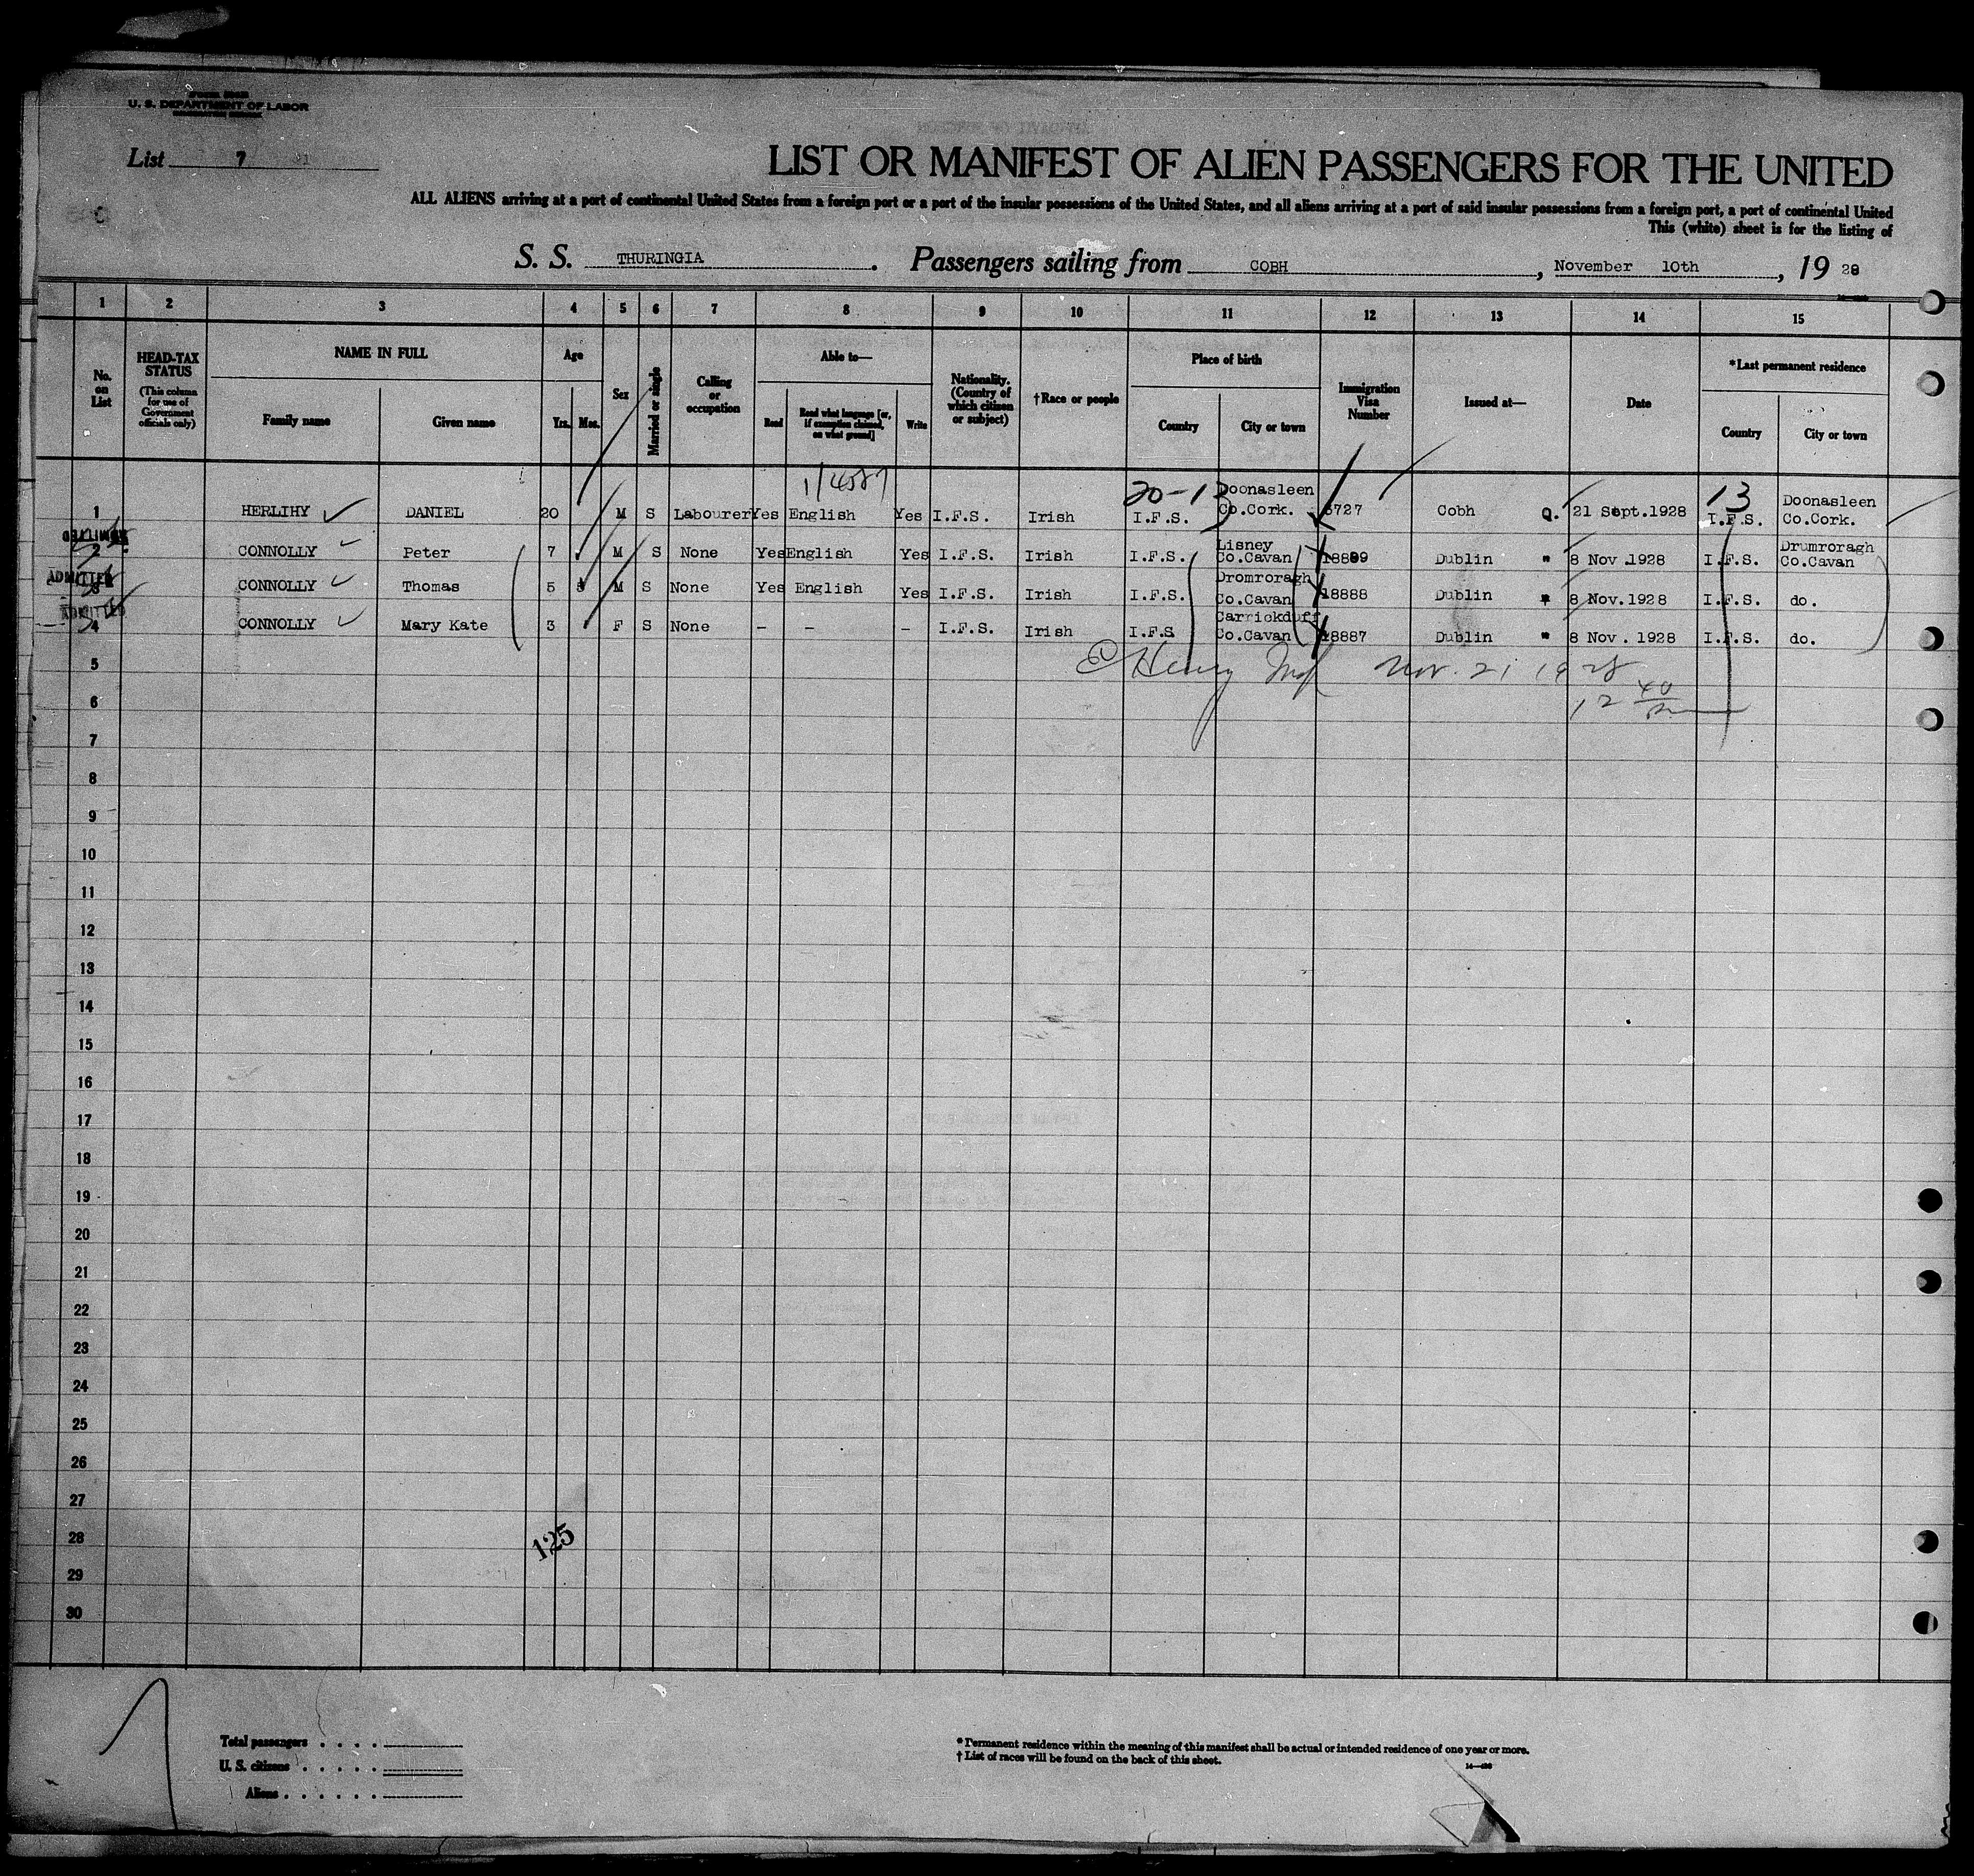 U. S. DEPARTMENT OF LABOR
List 7
LIST OR MANIFEST OF ALIEN PASSENGERS FOR THE UNITED
ALL ALIENS arriving at a port of continental United States from a foreign port or a port of the insular possessions of the United States, and all aliens arriving at a port of said insular possessions from a foreign port, a port of continental United
This (white) sheet is for the listing of
S. S. THURINGIA. Passengers sailing from COBH, November 10th, 19 28
1 2 3 4 5 6 7 8 9 10 11 12 13 14 15
No. on List
HEAD-TAX STATUS (This column for use of Government officials only)
NAME IN FULL
Family name Given name
Age
Yrs. Mos.
Sex
Married or single
Calling or occupation
Able to—
Read Read what language [or, if exemption claimed, on what ground] Write
Nationality. (Country of which citizen or subject)
†Race or people
Place of birth
Country City or town
Immigration Visa Number
Issued at—
Date
*Last permanent residence
Country City or town
20-13 Doonasleen 13 Doonasleen
1 HERLIHY DANIEL 20 M S Labourer Yes English Yes I.F.S. Irish I.F.S. Co.Cork. 6727 Cobh Q. 21 Sept.1928 I.F.S. Co.Cork.
Lisney Drumroragh
2 CONNOLLY Peter 7 M S None Yes English Yes I.F.S. Irish I.F.S. Co.Cavan 18899 Dublin " 8 Nov .1928 I.F.S. Co.Cavan
ADMITTED
Dromroragh
3 CONNOLLY Thomas 5 M S None Yes English Yes I.F.S. Irish I.F.S. Co.Cavan 18888 Dublin " 8 Nov.1928 I.F.S. do.
ADMITTED
Carrickduff
4 CONNOLLY Mary Kate 3 F S None - - - I.F.S. Irish I.F.S Co.Cavan 18887 Dublin " 8 Nov. 1928 I.F.S. do.
Henry Nov. 21 1928
5
6
12 40
7
8
9
10
11
12
13
14
15
16
17
18
19
20
21
22
23
24
25
26
27
28
125
29
30
Total passengers . . . .
U. S. citizens . . . . .
Aliens . . . . . .
* Permanent residence within the meaning of this manifest shall be actual or intended residence of one year or more.
† List of races will be found on the back of this sheet.